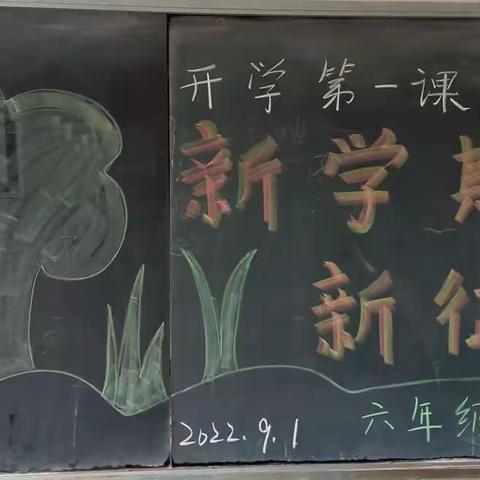 开学第一课
新学期
新征
2022.9.1
六年级